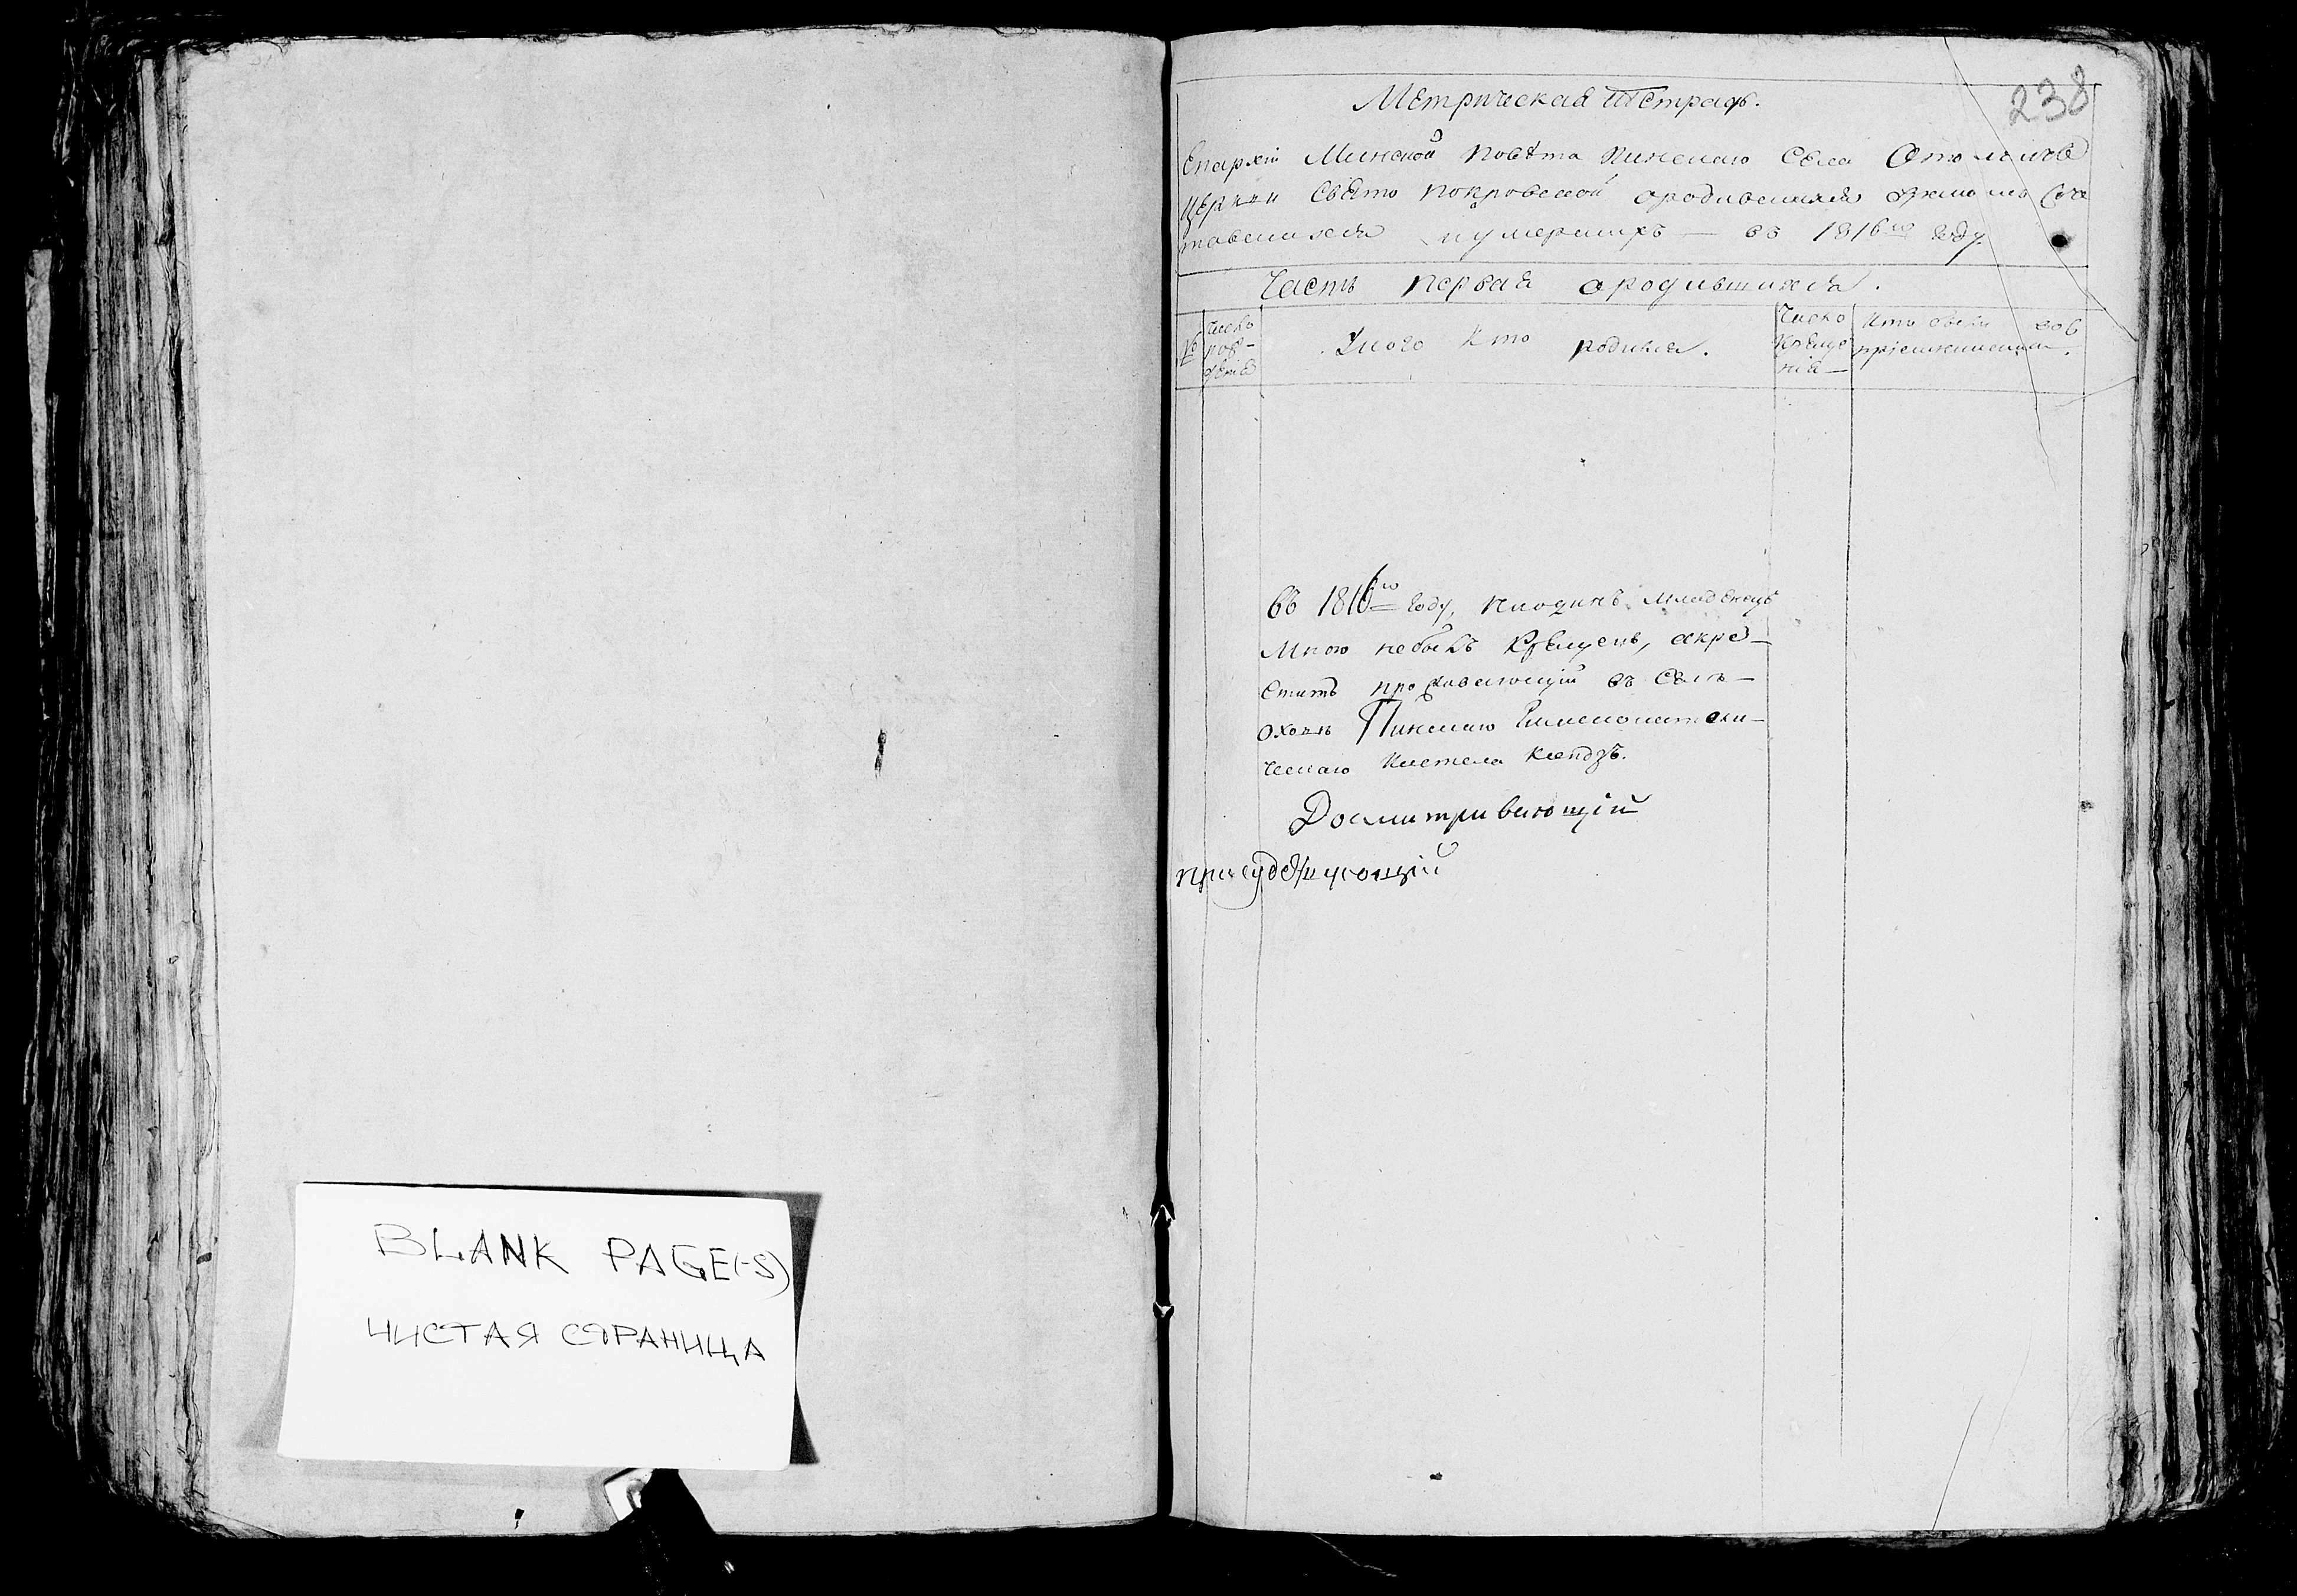 BLANK PAGE(-S)
ЧИСТАЯ СТРАНИЦА
238
Метрическая Тетрадь.
Епархіи Минской Повѣта Пинскаго Села
Церкви Свято Покровской ородившихся бракомъ Соче
тавшихся иумершихъ — въ 1816го году
Часть Первая ородившихся.
№
Число
рож-
денїя
Укого Кто родился.
Число
Креще
нїя —
Кто были вос
прїемниками.
Въ 1816го году, ниодинъ младенецъ
Мною небылъ Крещенъ, акре-
ститъ проживающїй въ Селѣ —
Пинскаго
ческаго Костела Ксендзъ.
Досматривающїй